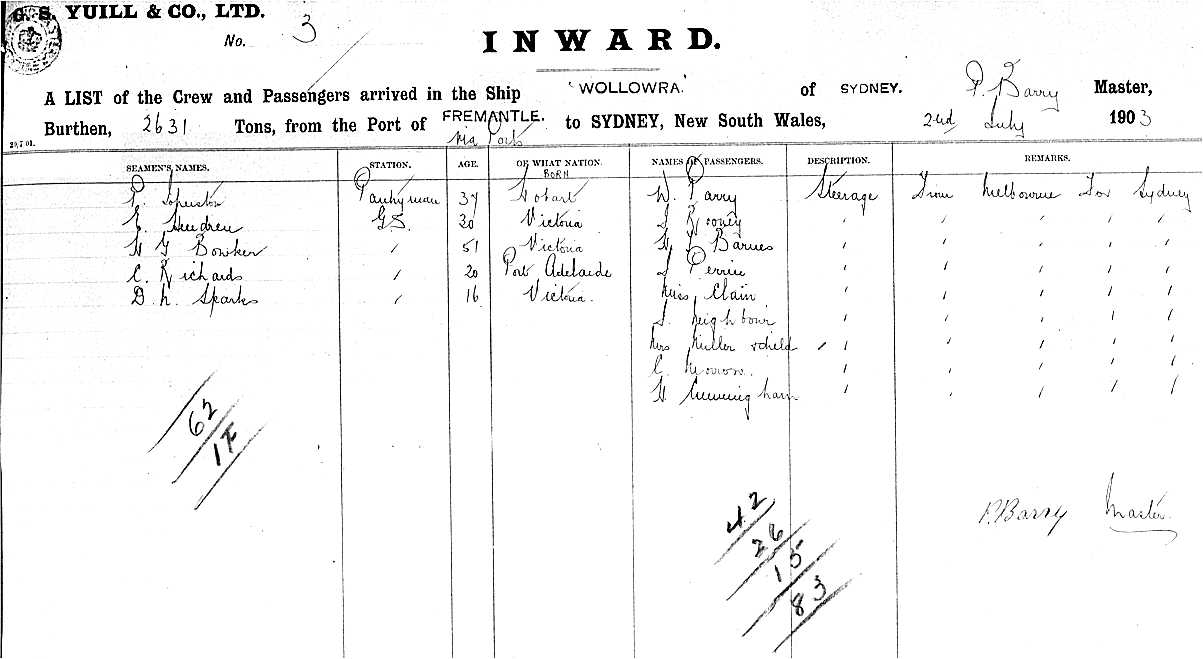 G. S. YUILL & CO., LTD.
No. 3
INWARD.
A LIST of the Crew and Passengers arrived in the Ship "WOLLOWRA" of SYDNEY. P. Barry Master,
Burthen, 2631 Tons, from the Port of FREMANTLE. via Ports to SYDNEY, New South Wales, 2nd July 1903
29.7.01.
SEAMEN'S NAMES. STATION. AGE. OF WHAT NATION. BORN NAMES OF PASSENGERS. DESCRIPTION. REMARKS.
P. Pantryman 37 Hobart W. Parry Steerage From Melbourne For Sydney
E. G.S. 20 Victoria J Rooney " " " "
H G Bowker " 51 Victoria H J Barnes " " " "
C. Richards " 20 Port Adelaide J Perrin " " " "
D. H. Sparks " 16 Victoria. Miss Clain " " " "
J. Neighbour " " " "
Mrs Miller & child " " " " "
C. Morrow. " " " "
H Cunningham " " " "
62
1 F
42
26
15
83
P. Barry Master.